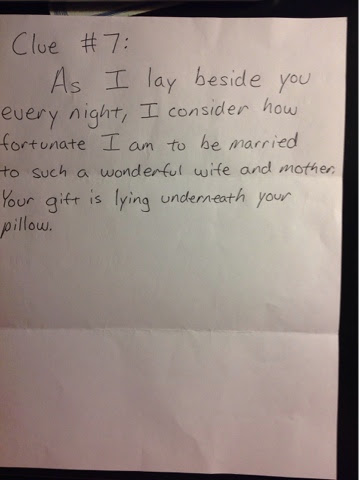 Clue #7:
As I lay beside you
every night, I consider how
fortunate I am to be married
to such a wonderful wife and mother.
Your gift is lying underneath your
pillow.